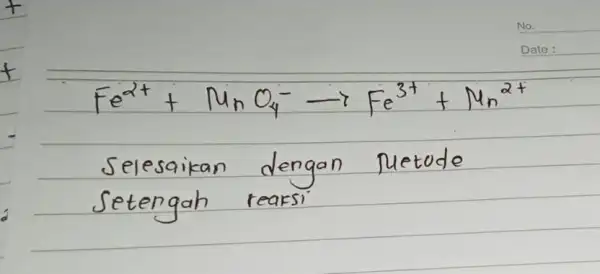 No.
Date :
Fe²⁺ + MnO₄⁻ → Fe³⁺ + Mn²⁺
Selesaikan dengan Metode
Setengah reaksi